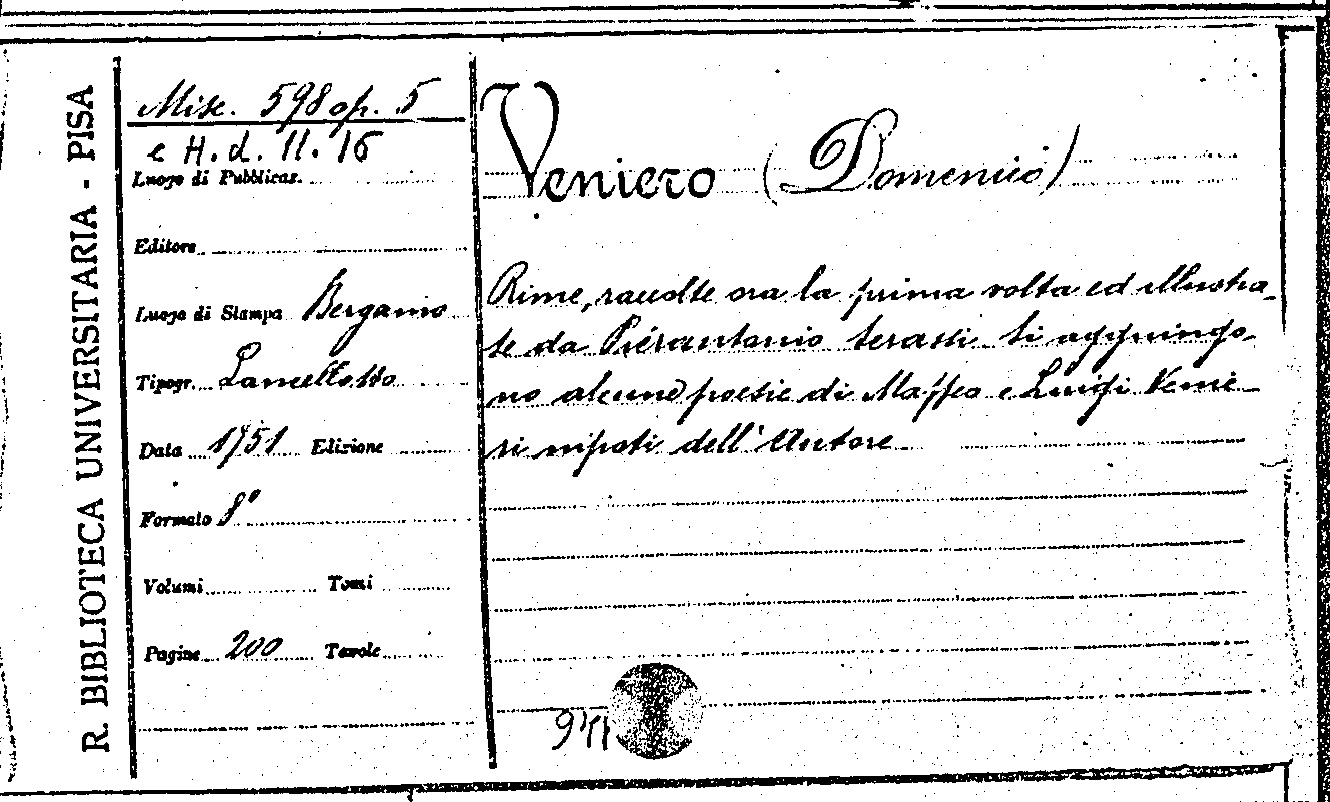 R. BIBLIOTECA UNIVERSITARIA - PISA
Misc. 598 op. 5
e H. d. 11. 16
Luogo di Pubblicaz.
Editore
Luogo di Stampa Bergamo
Tipogr. Lancellotto
Data 1751 Edizione
Formato 8°
Volumi Tomi
Pagine 200 Tavole
Veniero (Domenico)
Rime, raccolte ora la prima volta ed illustra-
te da Pierantonio Serassi Si aggiungo-
no alcune poesie di Maffeo e Luigi Venie-
ri nipoti dell'Autore